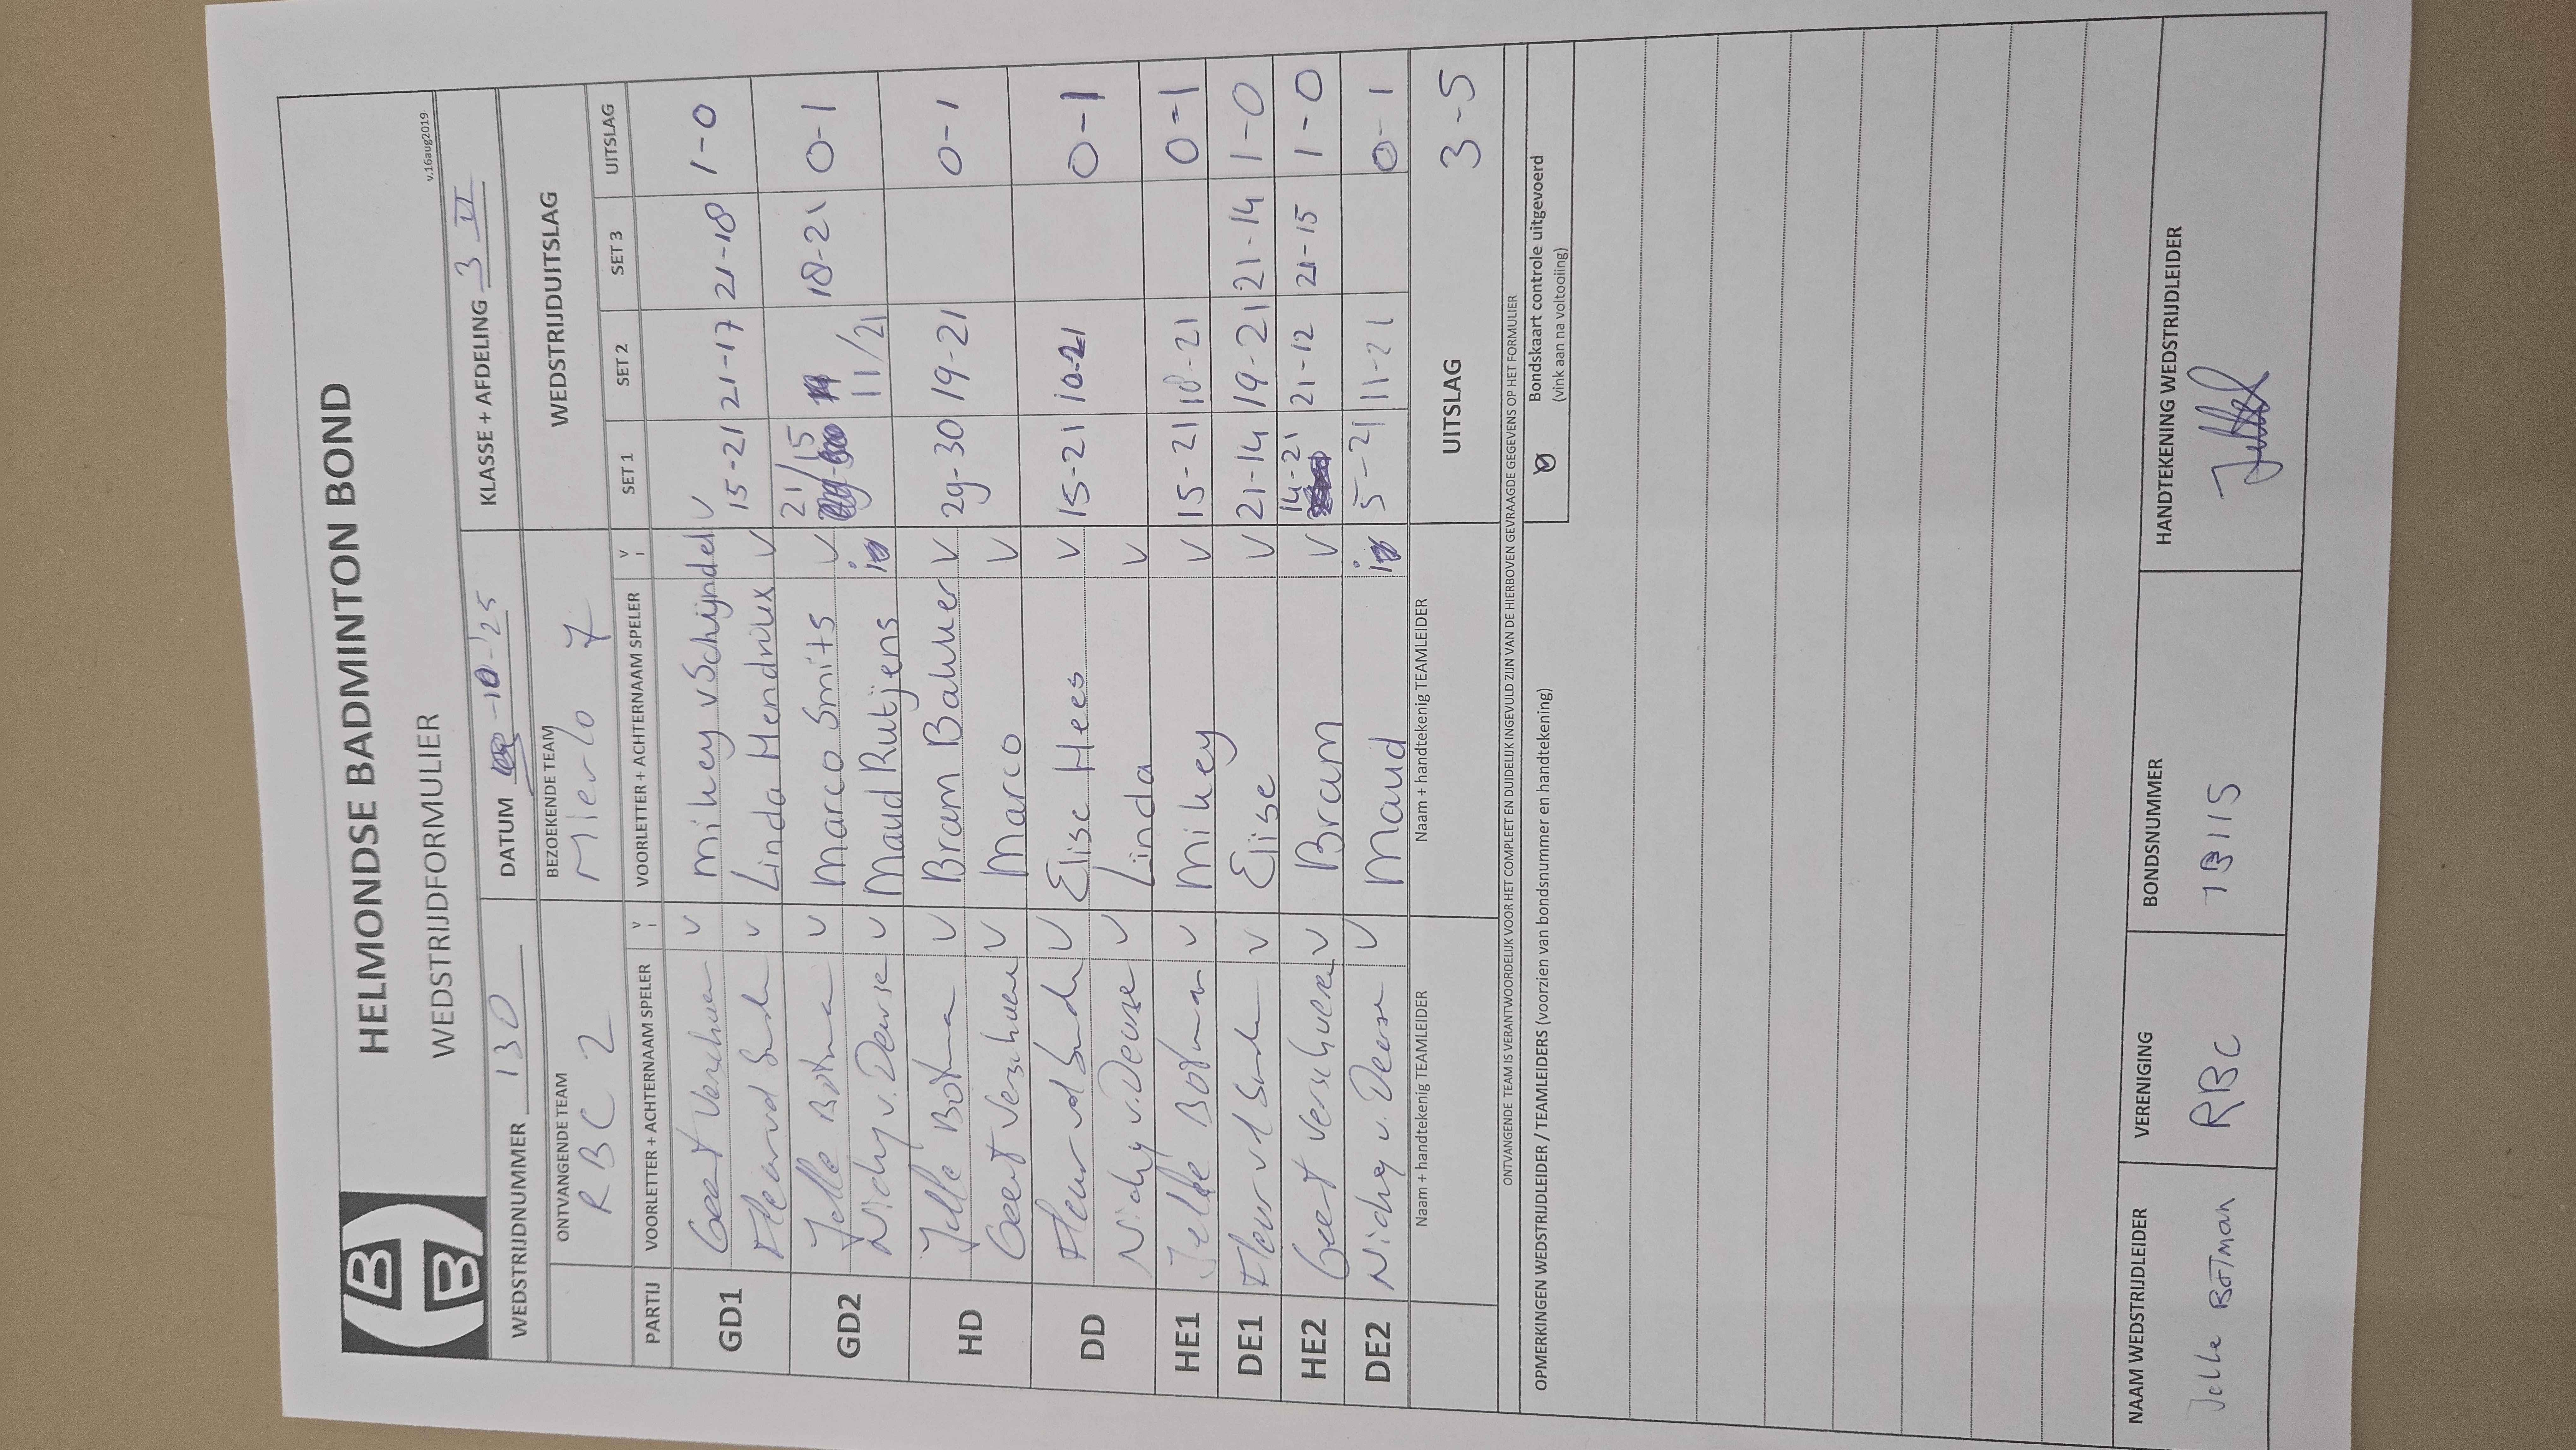 HELMONDSE BADMINTON BOND
WEDSTRIJDFORMULIER
v.16aug2019
WEDSTRIJDNUMMER 130 DATUM -10-'25 KLASSE + AFDELING 3 VI
ONTVANGENDE TEAM BEZOEKENDE TEAM WEDSTRIJDUITSLAG
RBC 2 Mierlo 7
PARTIJ VOORLETTER + ACHTERNAAM SPELER V VOORLETTER + ACHTERNAAM SPELER V SET 1 SET 2 SET 3 UITSLAG
GD1 Geert Verschuren V Mikey v Schijndel V 15-21 21-17 21-18 1-0
Fleur vd Sande V Linda Hendrikx V
GD2 Jelle Botman V Marco Smits V 21/15 11/21 18-21 0-1
Nicky v. Deurse V Maud Rutjens
HD Jelle Botman V Bram Bakker V 29-30 19-21 0-1
Geert Verschuren V Marco V
DD Fleur vd Sande V Elise Hees V 15-21 10-21 0-1
Nicky v. Deurse V Linda V
HE1 Jelle Botman V Mikey V 15-21 18-21 0-1
DE1 Fleur vd Sande V Elise V 21-14 19-21 21-14 1-0
HE2 Geert Verschueren V Bram V 14-21 21-12 21-15 1-0
DE2 Nicky v. Deurse V Maud 5-21 11-21 0-1
Naam + handtekenig TEAMLEIDER Naam + handtekenig TEAMLEIDER UITSLAG 3-5
ONTVANGENDE TEAM IS VERANTWOORDELIJK VOOR HET COMPLEET EN DUIDELIJK INGEVULD ZIJN VAN DE HIERBOVEN GEVRAAGDE GEGEVENS OP HET FORMULIER
OPMERKINGEN WEDSTRIJDLEIDER / TEAMLEIDERS (voorzien van bondsnummer en handtekening)
Bondskaart controle uitgevoerd
(vink aan na voltooiing)
NAAM WEDSTRIJDLEIDER VERENIGING BONDSNUMMER HANDTEKENING WEDSTRIJDLEIDER
Jelle Botman RBC